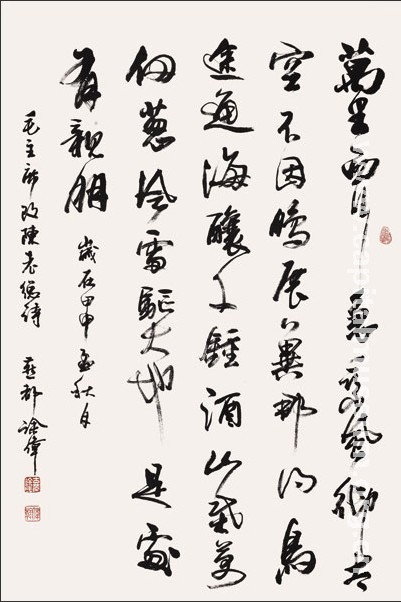 萬里西行急乘風御太
空不因鵬展翼那得鳥
途通海釀千鍾酒山栽萬
仞葱风雷驅大地是處
有親朋
歲在甲申孟秋月
毛主席改陳老總詩
燕都 偉